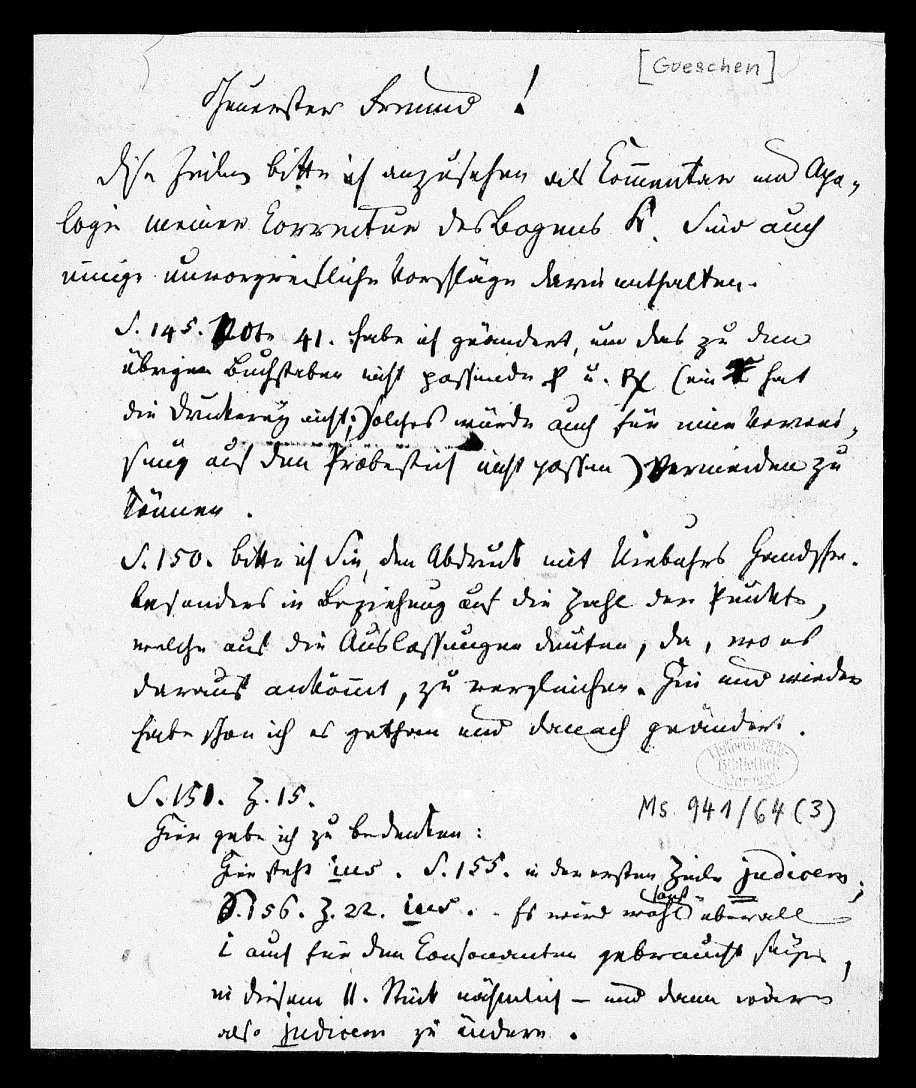 [Goeschen]
Theuerster Freund!
Diese Zeilen bitte ich anzusehen als Commentar und Apo-
logie meiner Correctur des Bogens K. Sind auch
einige unvorgreifliche Vorschläge darin enthalten.
S. 145. Note 41. habe ich geändert, um das zu den
übrigen Buchstaben nicht passende u. (ein hat
die Druckerey nicht; solches würde auch für eine Verwei-
sung auf den Probestich nicht passen) vermeiden zu
können.
S. 150. bitte ich Sie, den Abdruck mit Niebuhrs Handschr.
besonders in Beziehung auf die Zahl der Punkte,
welche auf die Auslassungen deuten, da, wo es
darauf ankömmt, zu vergleichen. Hin und wieder
habe schon ich es gethan und danach geändert.
S. 151. Z. 15.
Hier gebe ich zu bedenken:
Hier steht ius. S. 155. in der ersten Zeile judicem;
S. 156. Z. 22. ius. - Es wird wohl sonst überall
i auch für den Consonanten gebraucht seyn,
in diesem II. Stück nähmlich – und dann wäre
also judicem zu ändern.
Bibliothek
Ms. 941/64 (3)